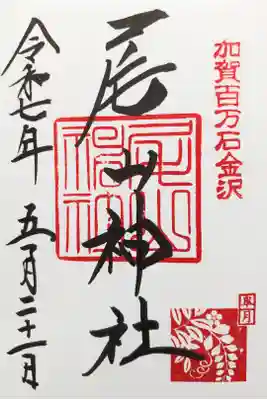 加賀百万石金沢
尾山神社
尾山神社
皐月
令和七年 五月二十一日